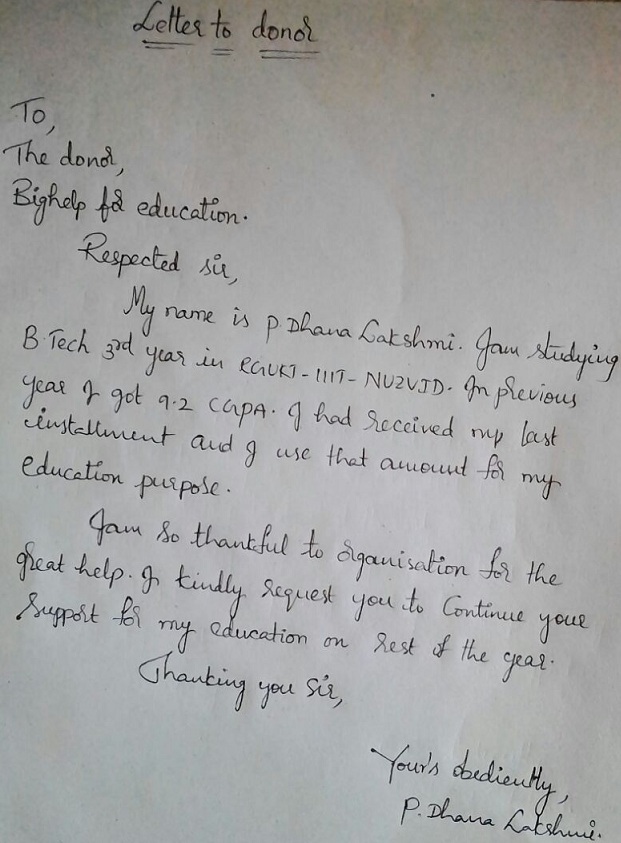 Letter to donor
To,
The donor,
Bighelp for education.
Respected sir,
My name is P.Dhana Lakshmi. I am studying
B.Tech 3rd year in RGUKT-IIIT-NUZVID. In previous
year I got 9.2 CGPA. I had received my last
installment and I use that amount for my
education purpose.
I am so thankful to organisation for the
great help. I kindly request you to continue your
support for my education on rest of the year.
Thanking you Sir,
Your's obediently,
P. Dhana Lakshmi.